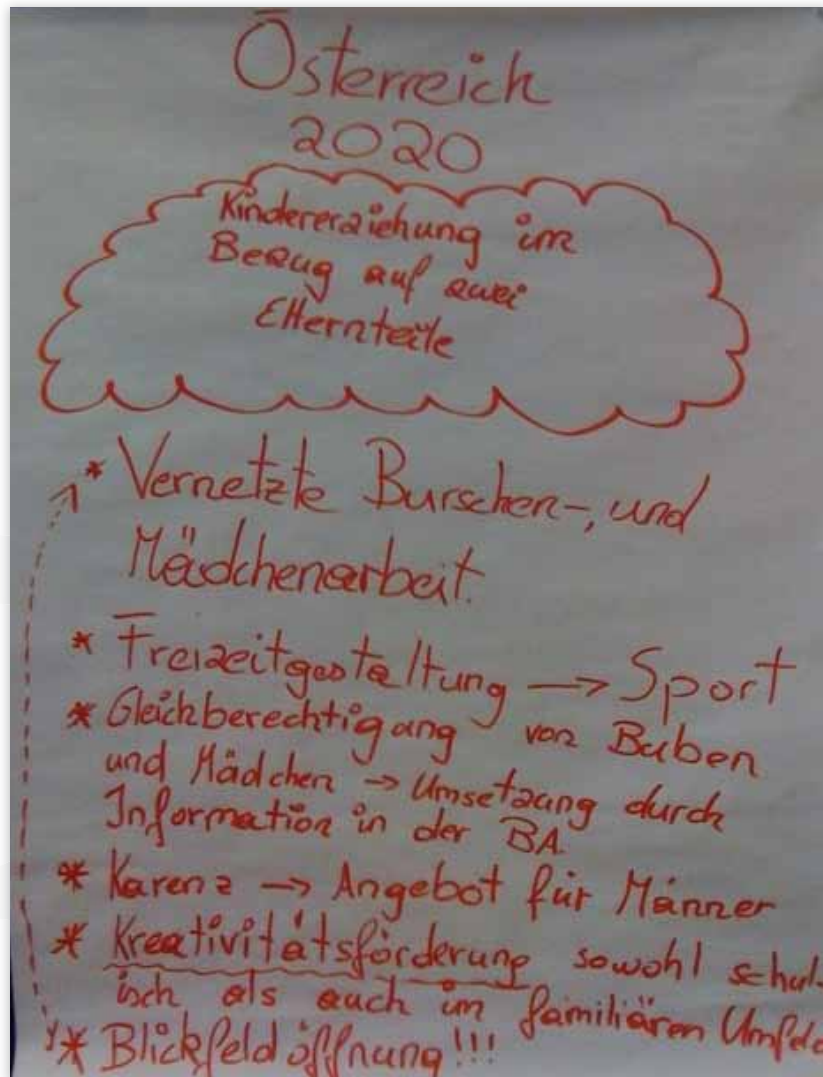 Österreich
2020
Kindererziehung im
Bezug auf zwei
Elternteile
* Vernetzte Burschen-, und
Mädchenarbeit.
* Freizeitgestaltung → Sport
* Gleichberechtigung von Buben
und Mädchen → Umsetzung durch
Information in der BA
* Karenz → Angebot für Männer
* Kreativitätsförderung sowohl schul-
isch als auch im familiären Umfeld
* Blickfeldöffnung!!!